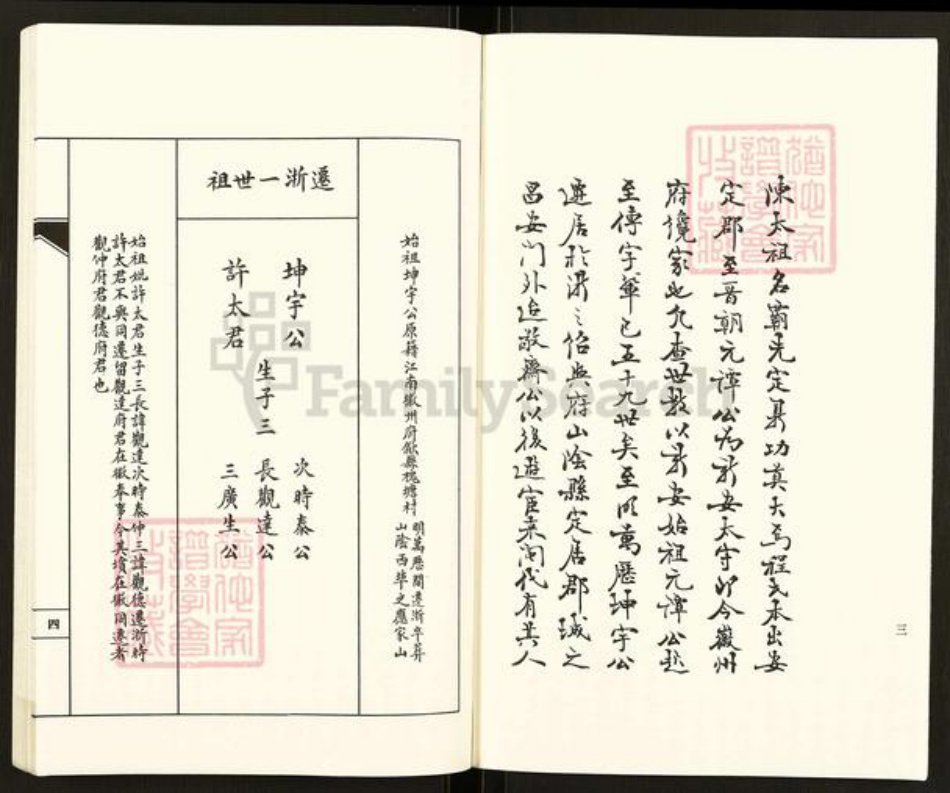 陳太祖名霸先定鼎功莫大焉程氏本出安
定郡至晉朝元譚公為新安太守即今徽州
府擕家也允查世教以新安始祖元譚公起
至傳字輩已五十九世矣至明萬歷坤宇公
遷居於浙之紹興府山陰縣定居郡城之
昌安門外迨敬齋公以後遊宦未聞代有其人
三
始祖坤宇公原籍江南徽州府歙縣槐塘村
明萬歷間遷浙卒葬
山陰西華之應家山
遷浙一世祖
坤宇公
許太君
生子三
次時泰公
長觀達公
三廣生公
始祖妣許太君生子三長諱觀達次時泰仲三諱觀德遷浙時
許太君不與同遷留觀達府君在徽奉事今其墳在徽同遷者
觀仲府君觀德府君也
四
FamilySearch